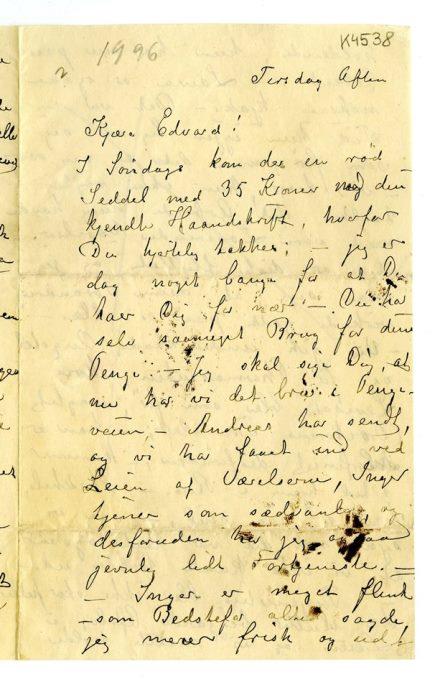 1996
K4538
Tirsdag Aften
Kjære Edvard!
I Søndags kom der en rød
Seddel med 35 Kroner med den
kjendte Haandskrift, hvorfor
Du hjertelig takkes; – jeg er
dog noget bange for at Du
taer Dig for nær – Du har
selv saameget Brug for dine
Penge. – Jeg skal sige Dig, at
nu har vi det bra i Penge-
veien, – Andreas har sendt,
og vi har faaet ind ved
Leien af Værelserne, Inger
tjener som sædvanlig, og
desforuden har jeg ogsaa
jevnlig lidt Fortjeneste. –
– Inger er meget flink
– som Bedstefar altid sagde,
jeg mener frisk og